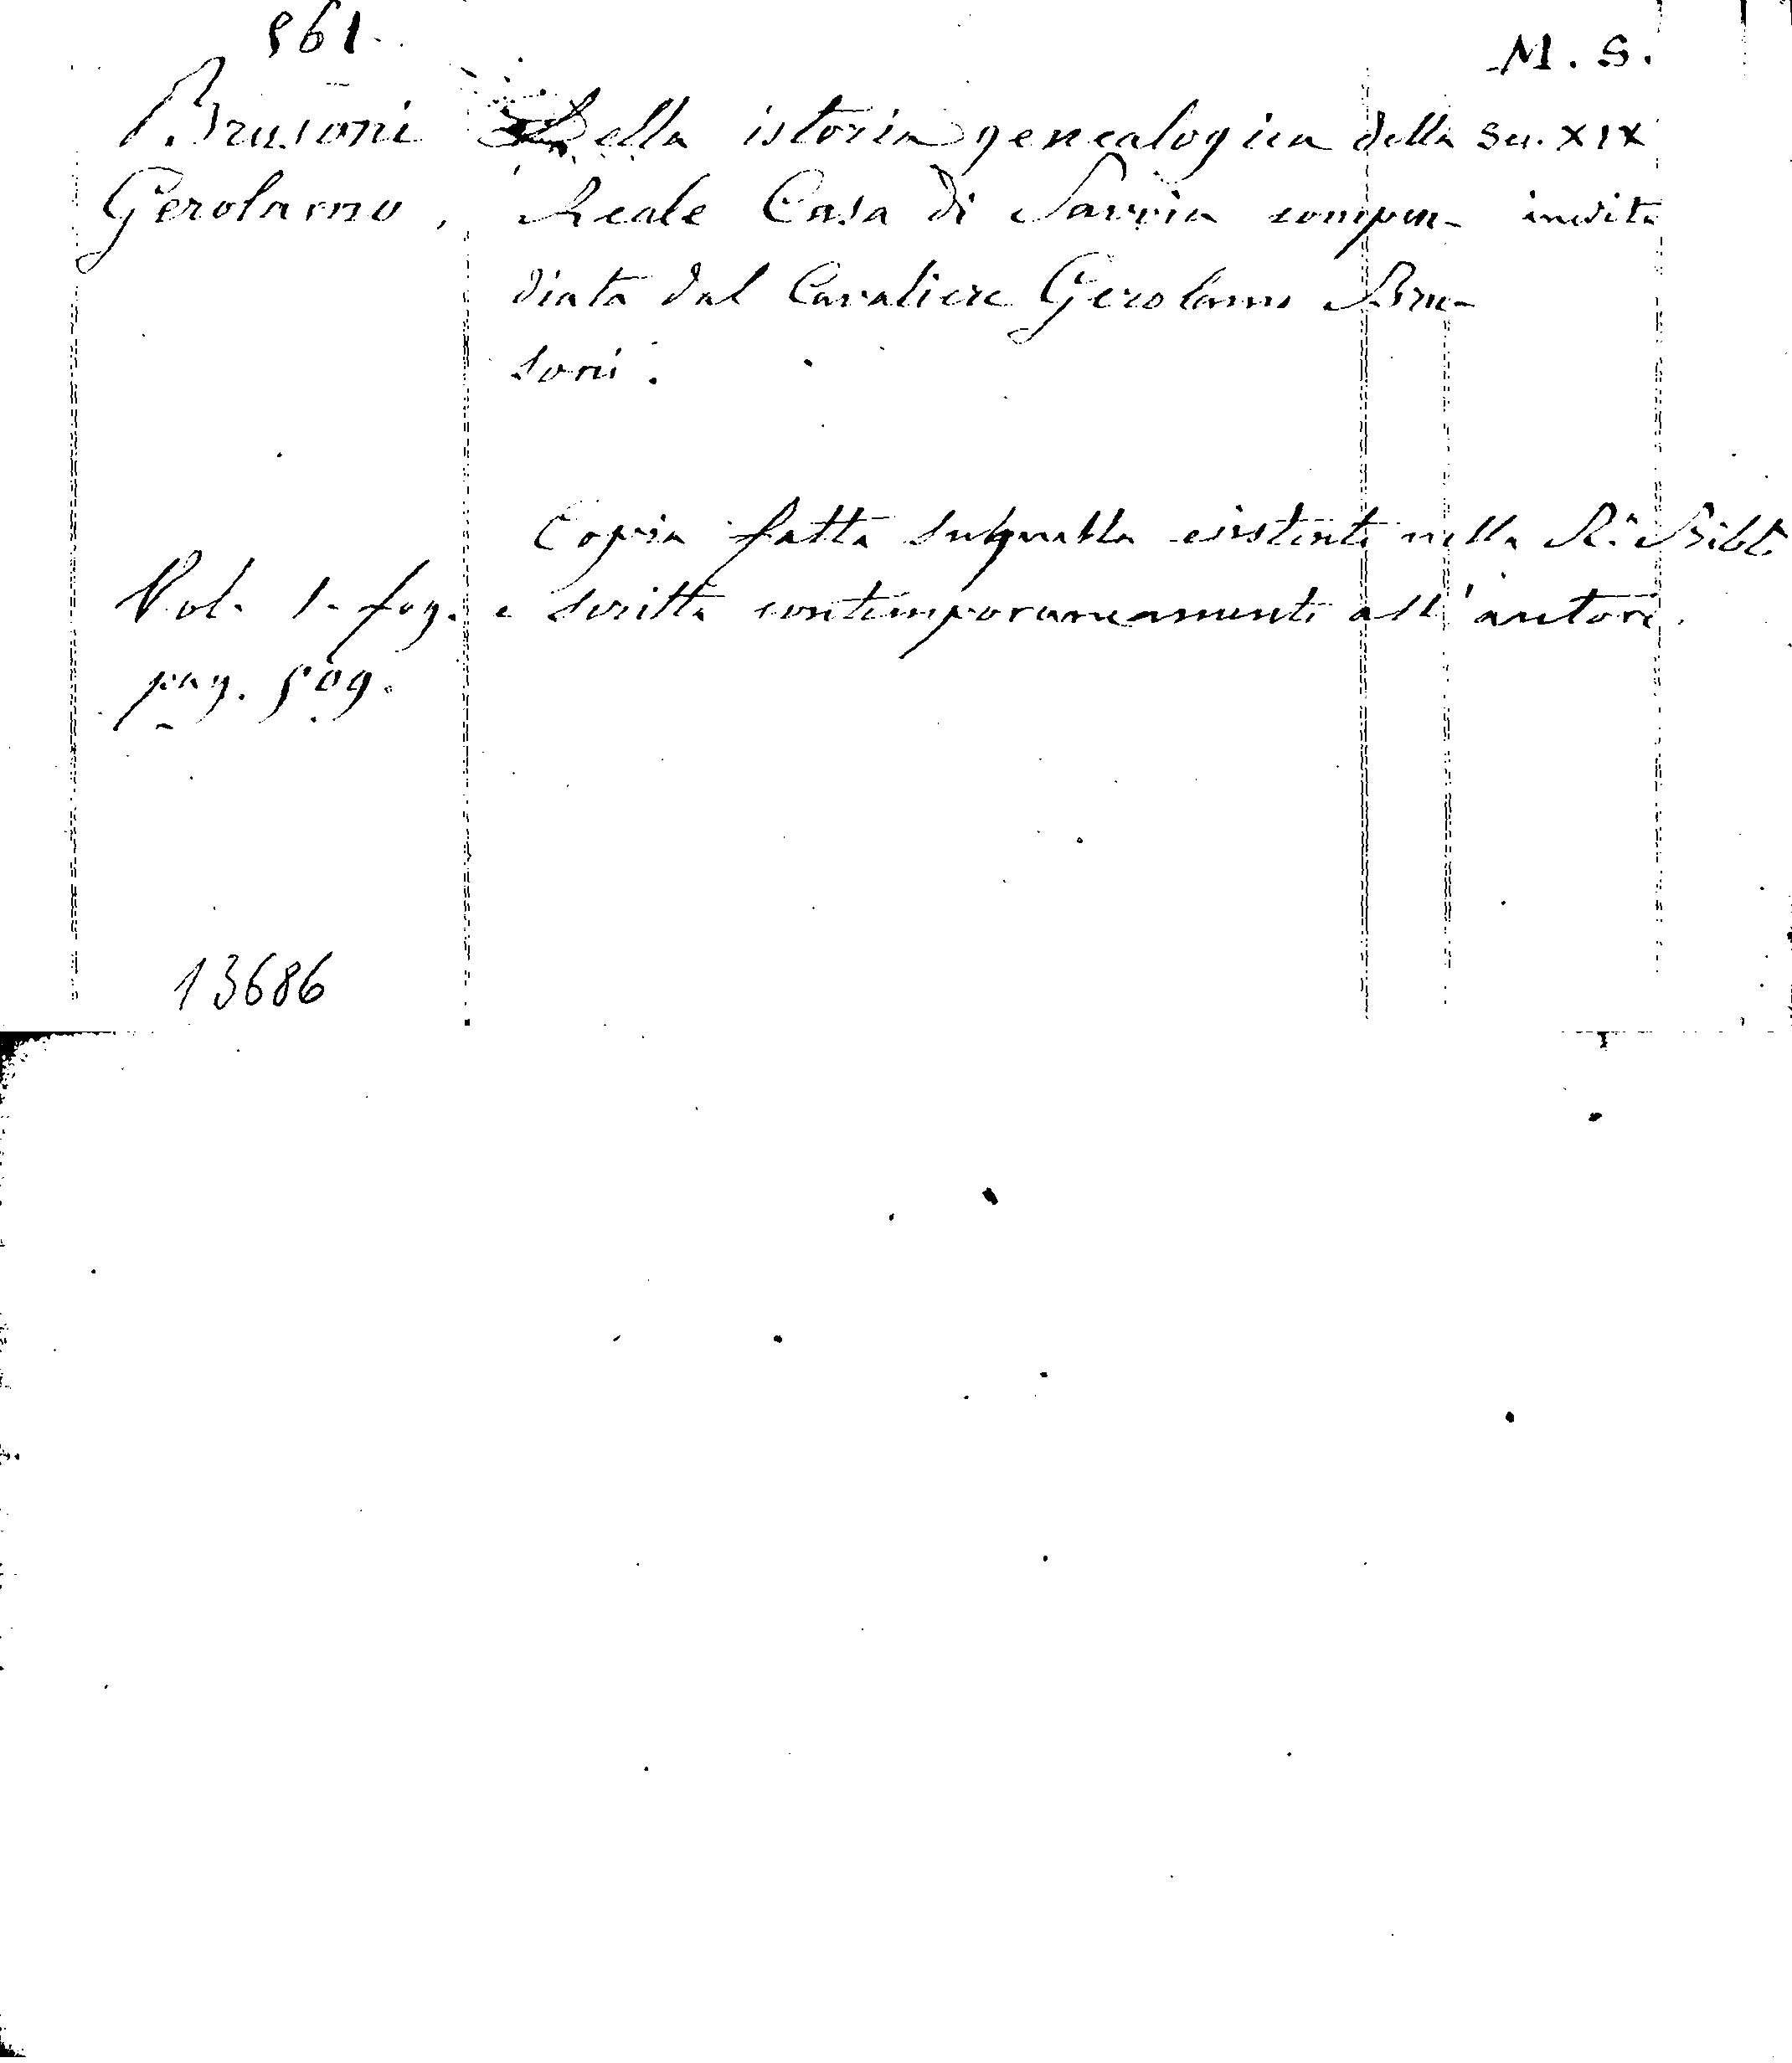 561.
M. S.
Brusoni Della istoria genealogica della sec. XIX
Gerolamo, Reale Casa di Savoia compen- inedita
diata dal Cavaliere Gerolamo Bru-
soni.
Copia fatta su quella esistente nella R.a Bibl.
Vol. 1- fog. e scritta contemporaneamente all'autore.
pag. 509.
13686